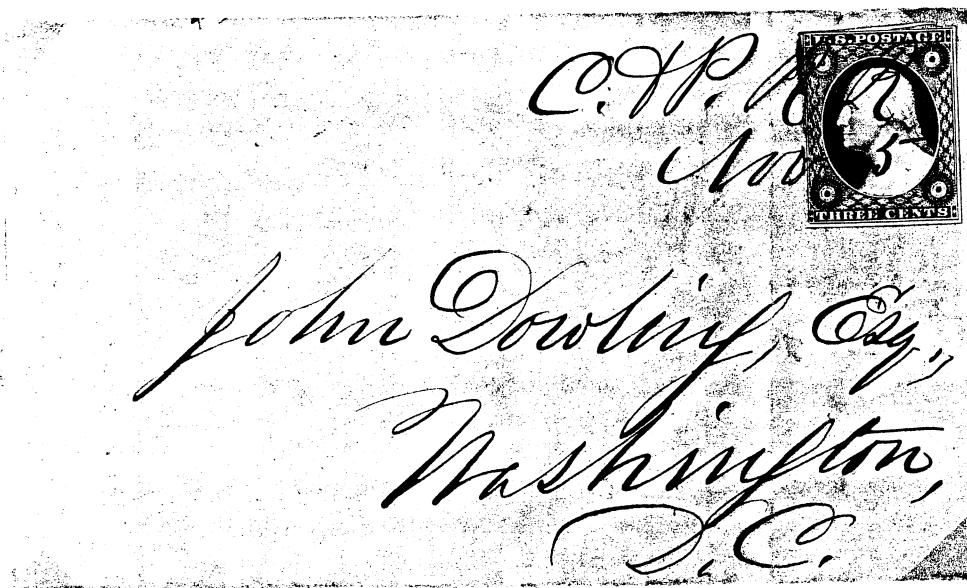 C. & P. R R
Nov 5
U.S. POSTAGE
THREE CENTS
John Dowling, Esq.,
Washington,
D.C.